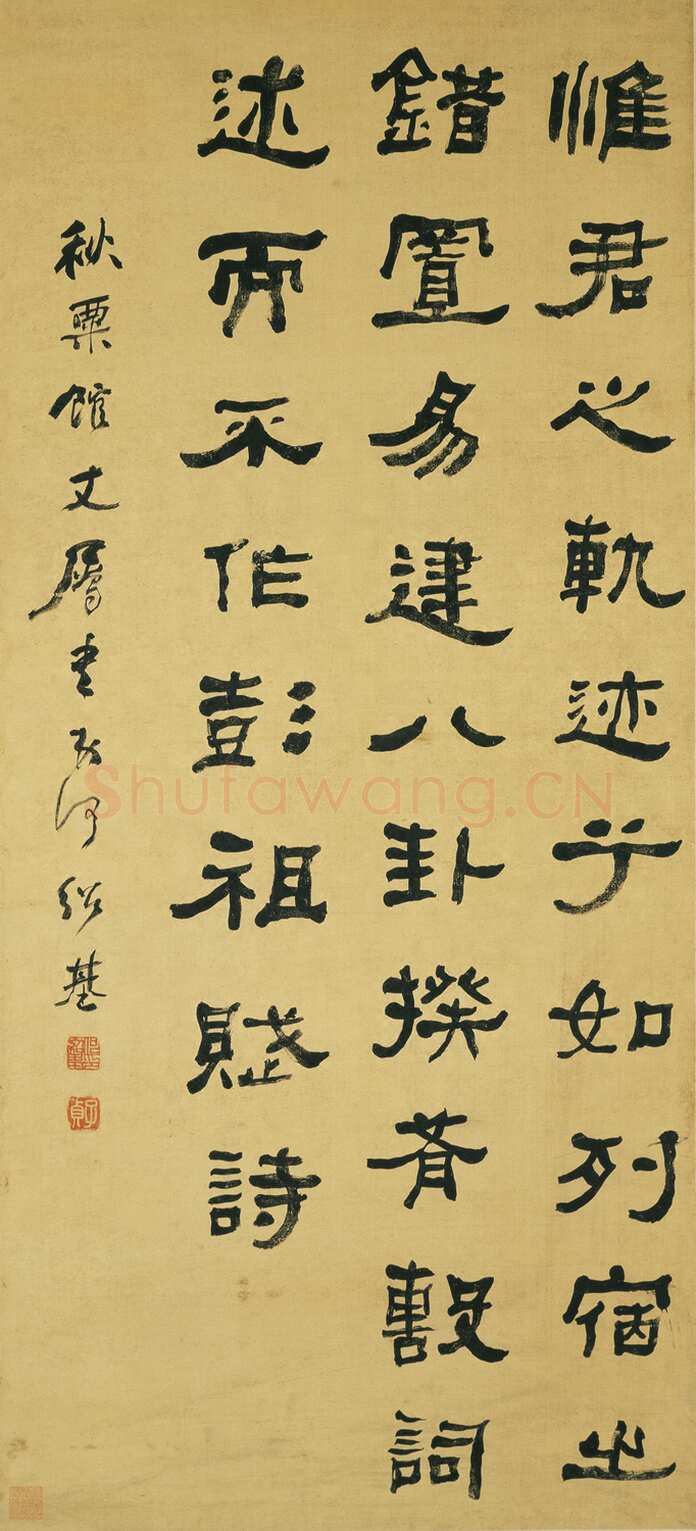 惟君之軌迹兮如列宿之
錯置易建八卦揆肴毄詞
述而不作彭祖賦詩
秋粟館丈屬書弟何紹基
子貞
Shufawang.CN